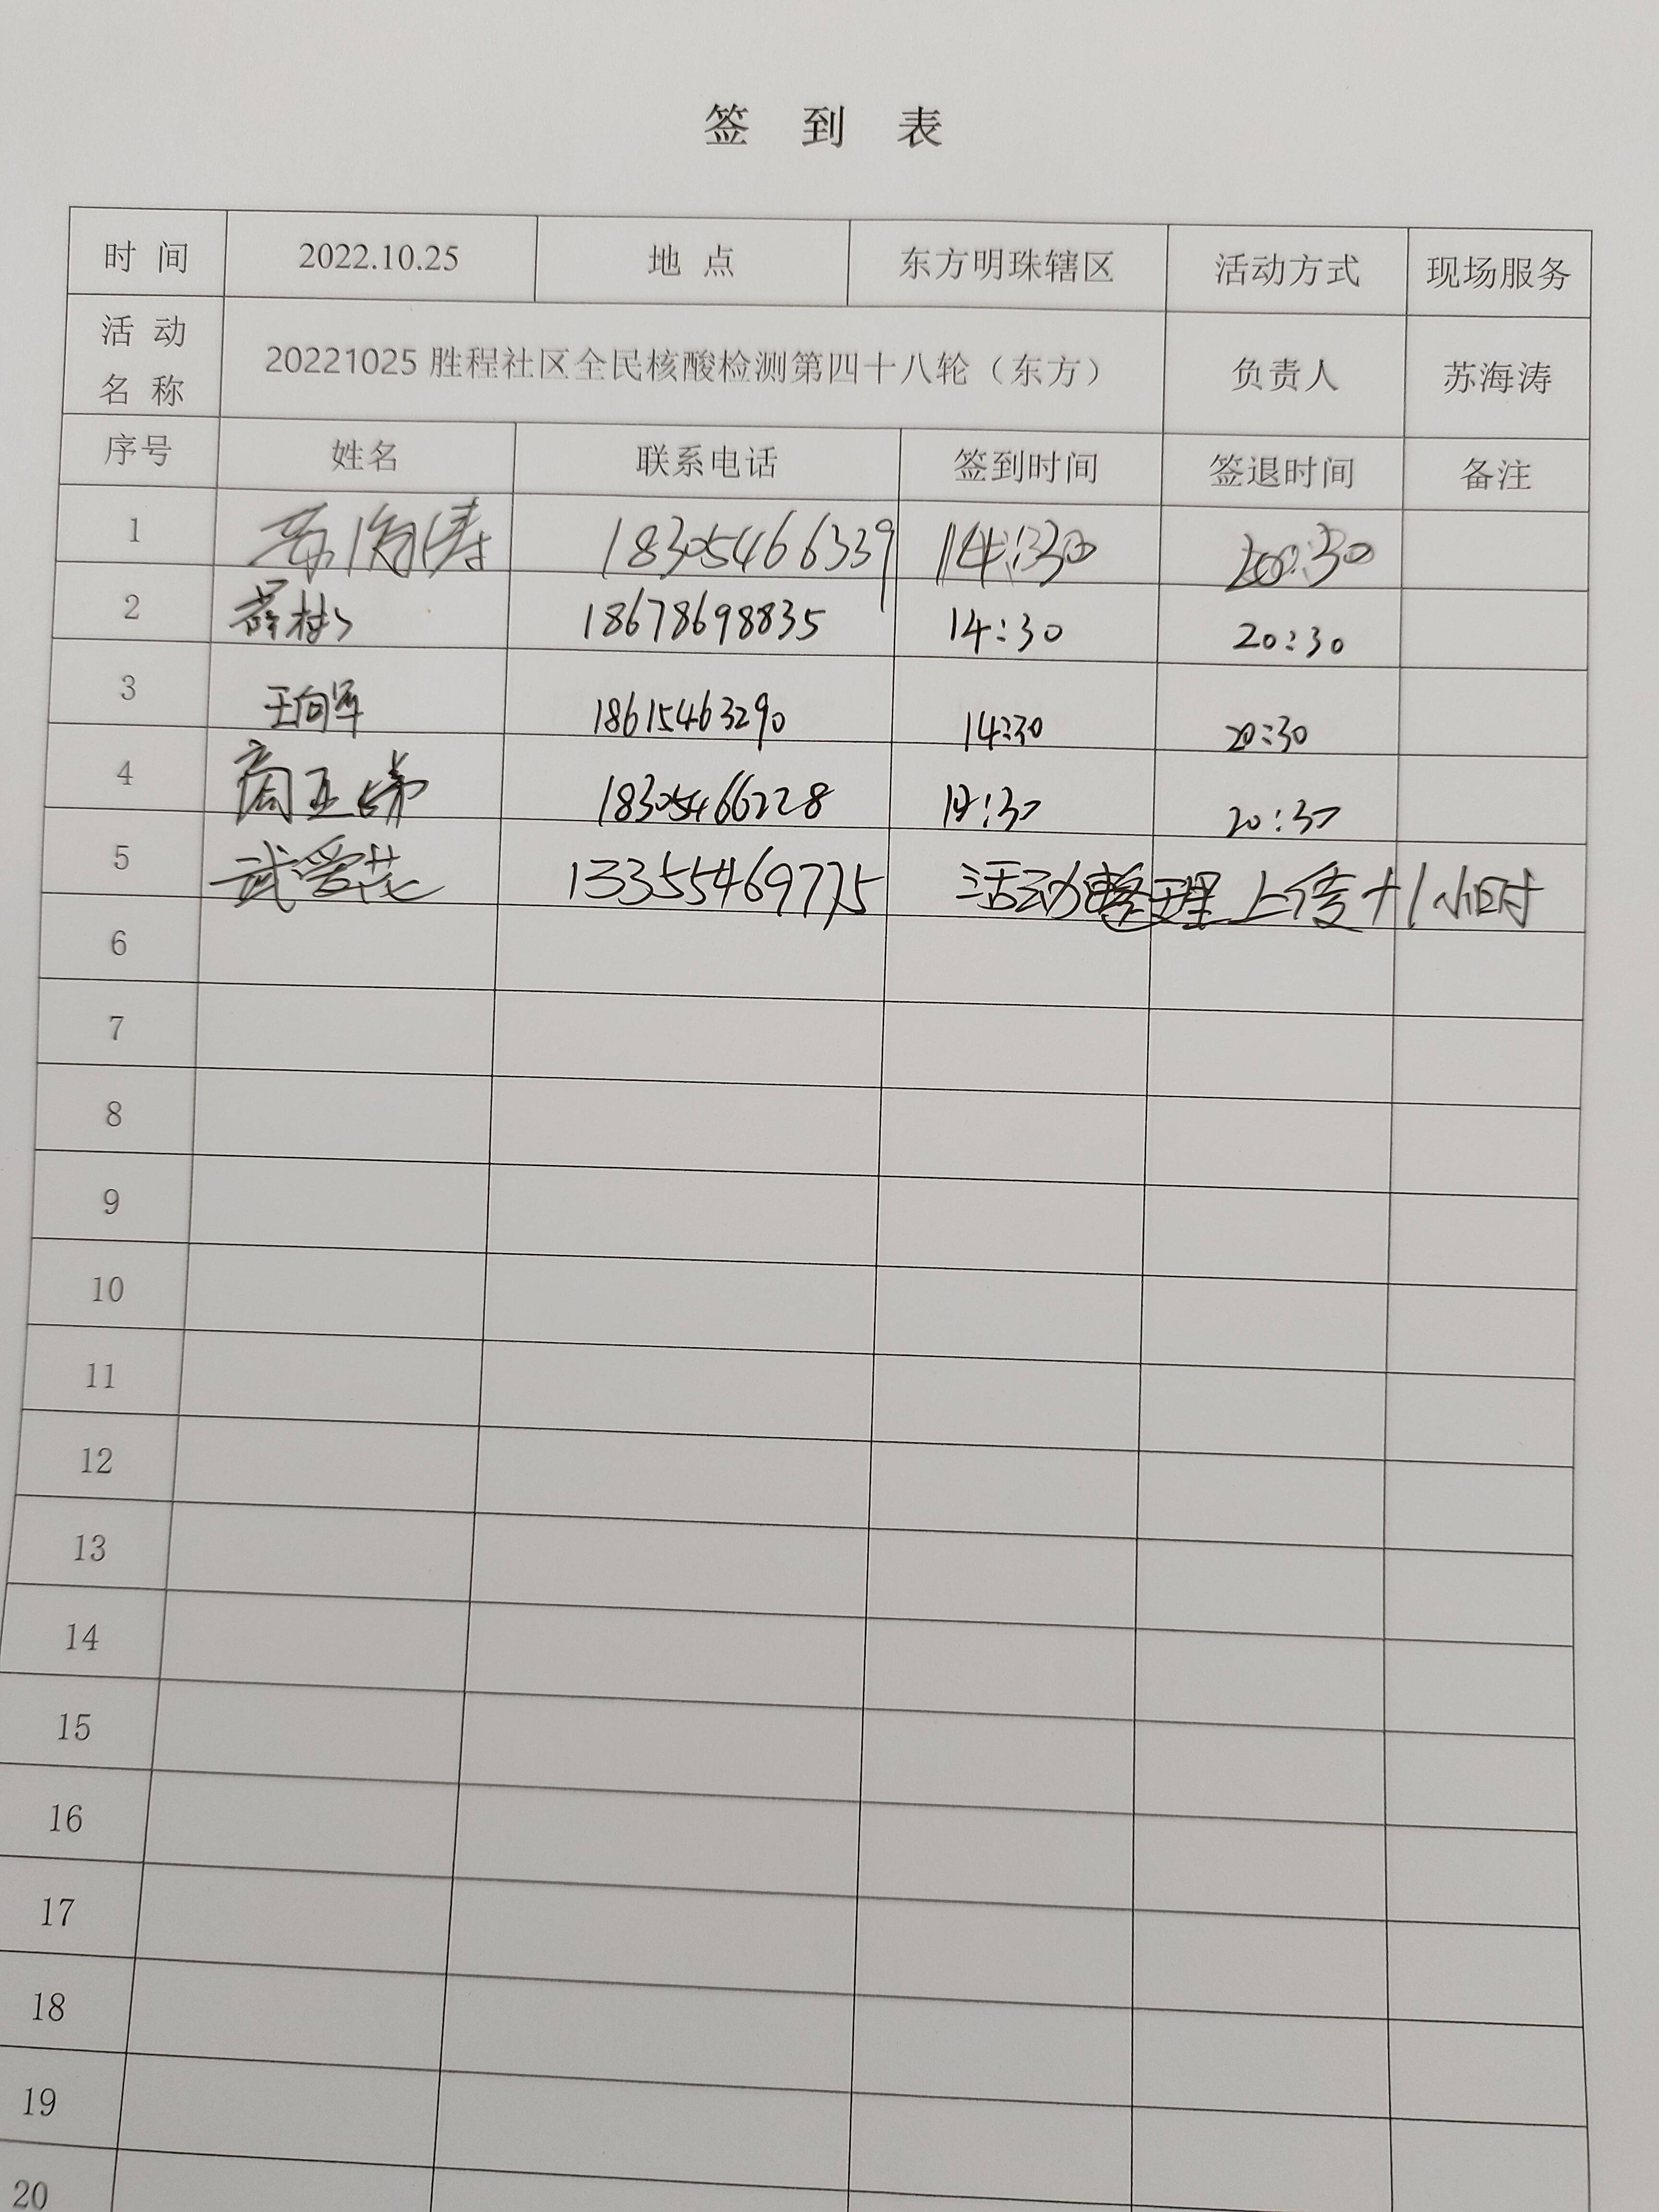 签 到 表
时 间 2022.10.25 地 点 东方明珠辖区 活动方式 现场服务
活 动
名 称 20221025 胜程社区全民核酸检测第四十八轮（东方） 负责人 苏海涛
序号 姓名 联系电话 签到时间 签退时间 备注
1 苏海涛 18305466339 14:30 20:30
2 18678698835 14:30 20:30
3 王向军 18615463290 14:30 20:30
4 商亚娣 18305466228 14:30 20:30
5 武爱花 13355469775 活动整理上传+1小时
6
7
8
9
10
11
12
13
14
15
16
17
18
19
20